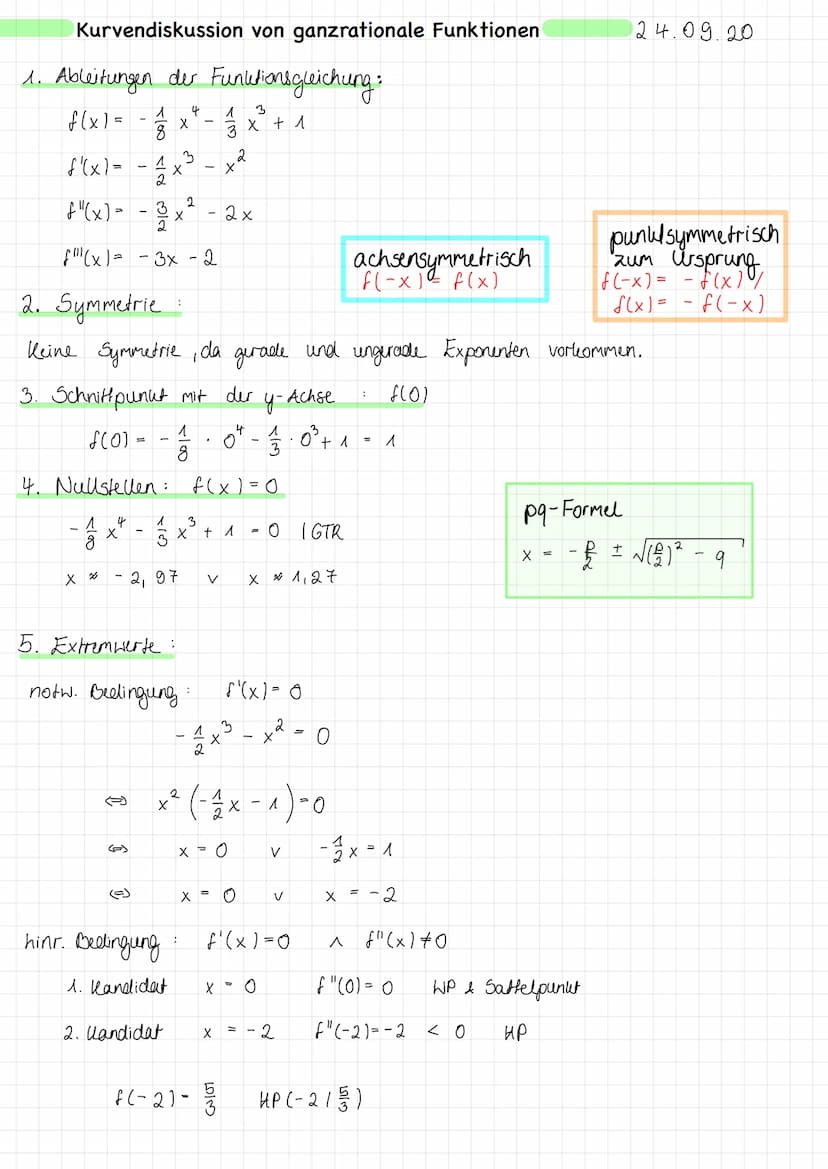 Kurvendiskussion von ganzrationale Funktionen 24.09.20
1. Ableitungen der Funktionsgleichung:
f(x) = - 1/8 x⁴ - 1/3 x³ + 1
f'(x) = - 1/2 x³ - x²
f''(x) = - 3/2 x² - 2x
f'''(x) = - 3x - 2
achsensymmetrisch
f(-x) = f(x)
punktsymmetrisch
zum Ursprung
f(-x) = - f(x) /
f(x) = - f(-x)
2. Symmetrie :
Keine Symmetrie, da gerade und ungerade Exponenten vorkommen.
3. Schnittpunkt mit der y-Achse : f(0)
f(0) = - 1/8 · 0⁴ - 1/3 · 0³ + 1 = 1
4. Nullstellen : f(x) = 0
- 1/8 x⁴ - 1/3 x³ + 1 = 0 | GTR
x ≈ - 2,97 ∨ x ≈ 1,27
pq-Formel
x = - p/2 ± √((p/2)² - q)
5. Extremwerte :
notw. Bedingung : f'(x) = 0
- 1/2 x³ - x² = 0
⇔ x² (- 1/2 x - 1) = 0
⇔ x = 0 ∨ - 1/2 x = 1
⇔ x = 0 ∨ x = -2
hinr. Bedingung : f'(x) = 0 ∧ f''(x) ≠ 0
1. Kandidat x = 0 f''(0) = 0 WP & Sattelpunkt
2. Kandidat x = -2 f''(-2) = -2 < 0 HP
f(-2) = 5/3 HP (-2 | 5/3)